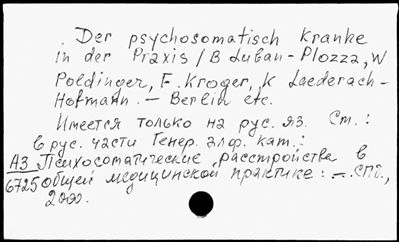 Der psychosomatisch Kranke
in der Praxis / B Luban-Plozza, W
Poldinger, F. Kroger, K Laederach-
Hofmann. — Berlin etc.
Имеется только на рус. яз. См.:
в рус. части Генер. алф. кат.:
А3 Психосоматические расстройства в
6725 общей медицинской практике: — СПб.,
2000.